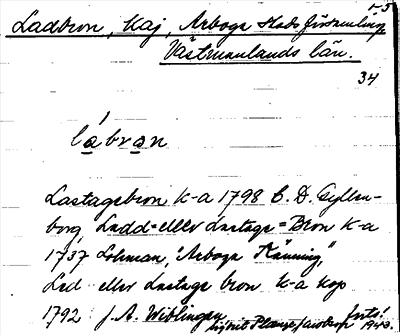 Ladbron, Kaj, Arboga Stads församling
Västmanlands län.
34
lábran
Lastagebron k-a 1798 C. D. Gyllen-
borg, Ladd= eller Lastage=Bron k-a
1737 Lohman, "Arboga Känning,"
Lad eller Lastage bron k-a kop
1792 J. A. Wiblingen
forts!
1943.